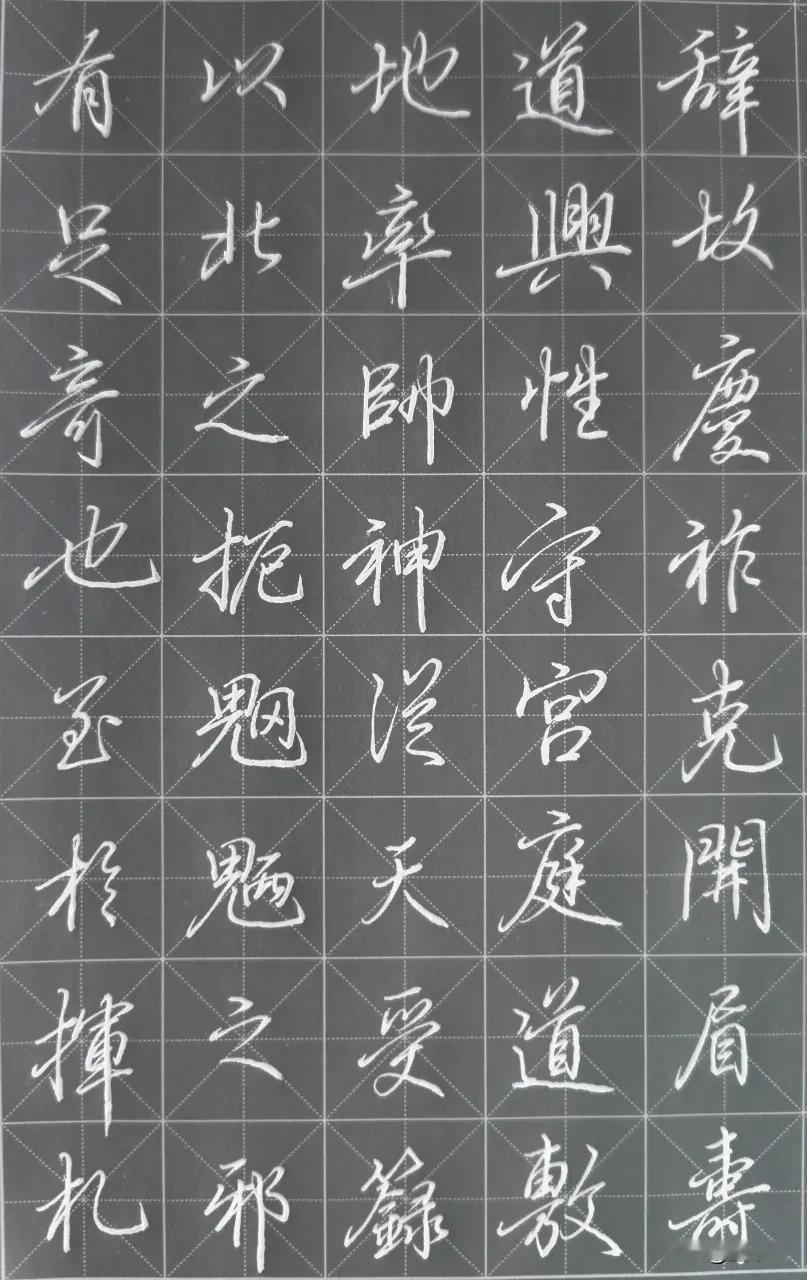 辞故慶祚克開眉壽
道興性守宮庭道敷
地率帥神從天受籙
以北之扼魍魎之邪
有足竒也至於揮札